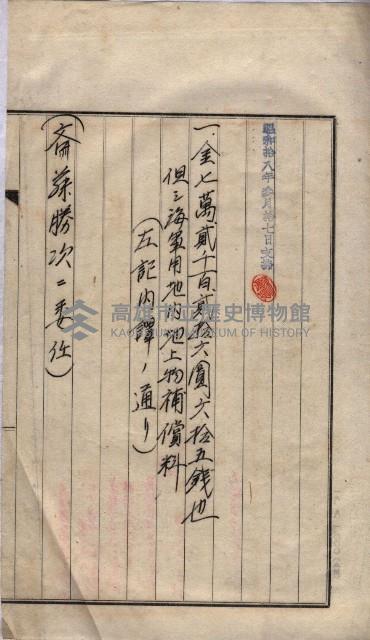 昭和拾八年參月卅七日支拂
一、金七萬貳千百貳拾六圓六拾五錢也
但シ海軍用地內地上物補償料
（左記內譯ノ通リ）
（斎藤勝次ニ委任）
高雄市立歷史博物館
KAOHSIUNG MUSEUM OF HISTORY